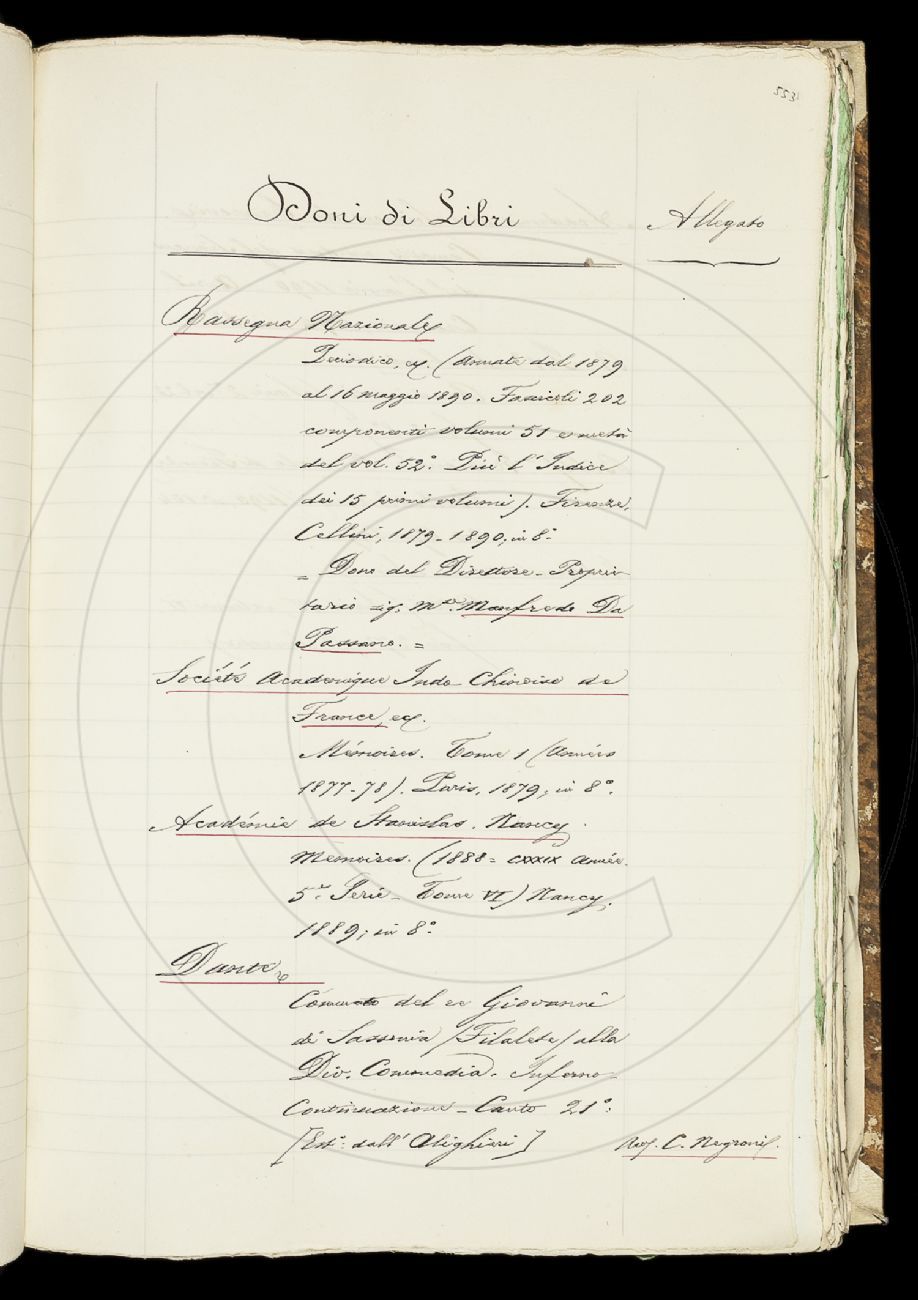 223
Doni di Libri
Allegato
Rassegna Nazionale
Periodico, ex. (Annate dal 1879
al 16 maggio 1890. Fascicoli 202
componenti volumi 51 e metà
del vol. 52º. Più l'Indice
dei 15 primi volumi). Firenze,
Cellini, 1879-1890, in 8º
= Dono del Direttore-Proprie-
tario sig. Mse. Manfredo Da
Passano. =
Société Académique Indo-Chinoise de
France, ex.
Mémoires. Tome 1 (Années
1877-78). Paris, 1879; in 8º.
Académie de Stanislas. Nancy.
Memoires. (1888 = CXXXIX Année.
5e Serie - Tome VI) Nancy,
1889; in 8º.
Dante
Comento del re Giovanni
di Sassonia (Filalete) alla
Div. Commedia. Inferno-
Continuazione - Canto 21º:
[Estº. dall'Alighieri]
Prof. C. Negroni.